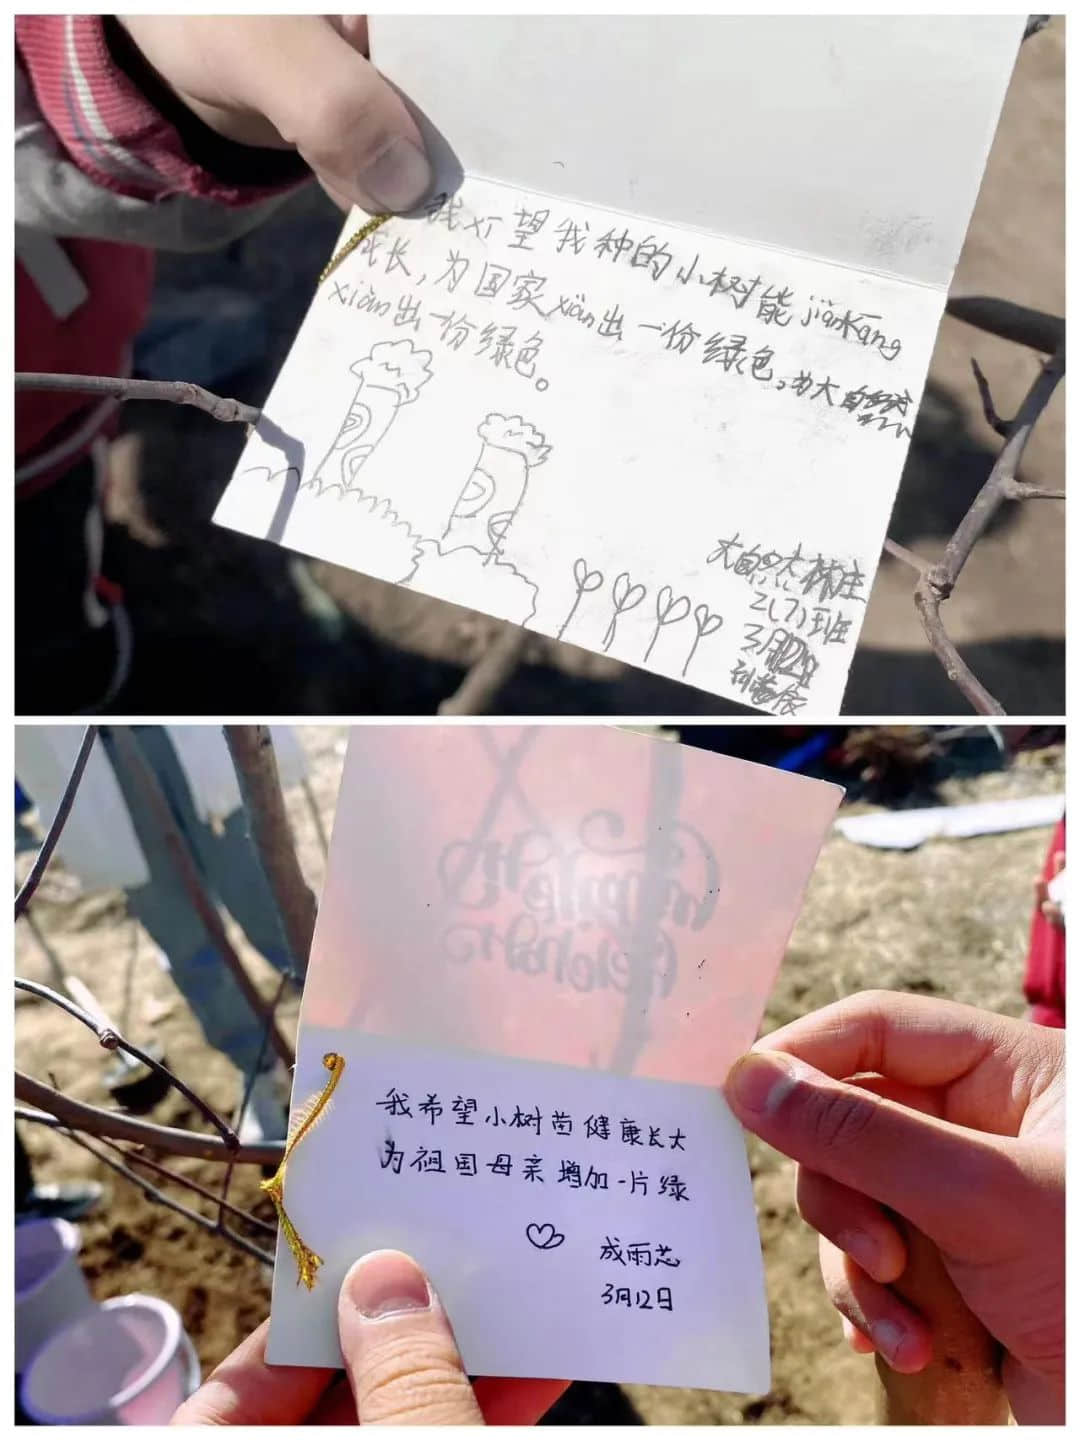 我xī望我种的小树能jiànkāng
成长，为国家xiàn出一份绿色。为大自然
xiàn出一份绿色。
大自然大林庄
2(7)班
3月12日
我希望小树苗健康长大
为祖国母亲增加一片绿
成雨芯
3月12日